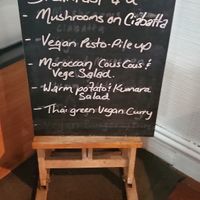 - Mushrooms on Ciabatta
- Vegan Pesto-Pile up
- Moroccan Cous Cous &
Vege Salad.
- Warm potato & Kumara
Salad
- Thai green Vegan Curry